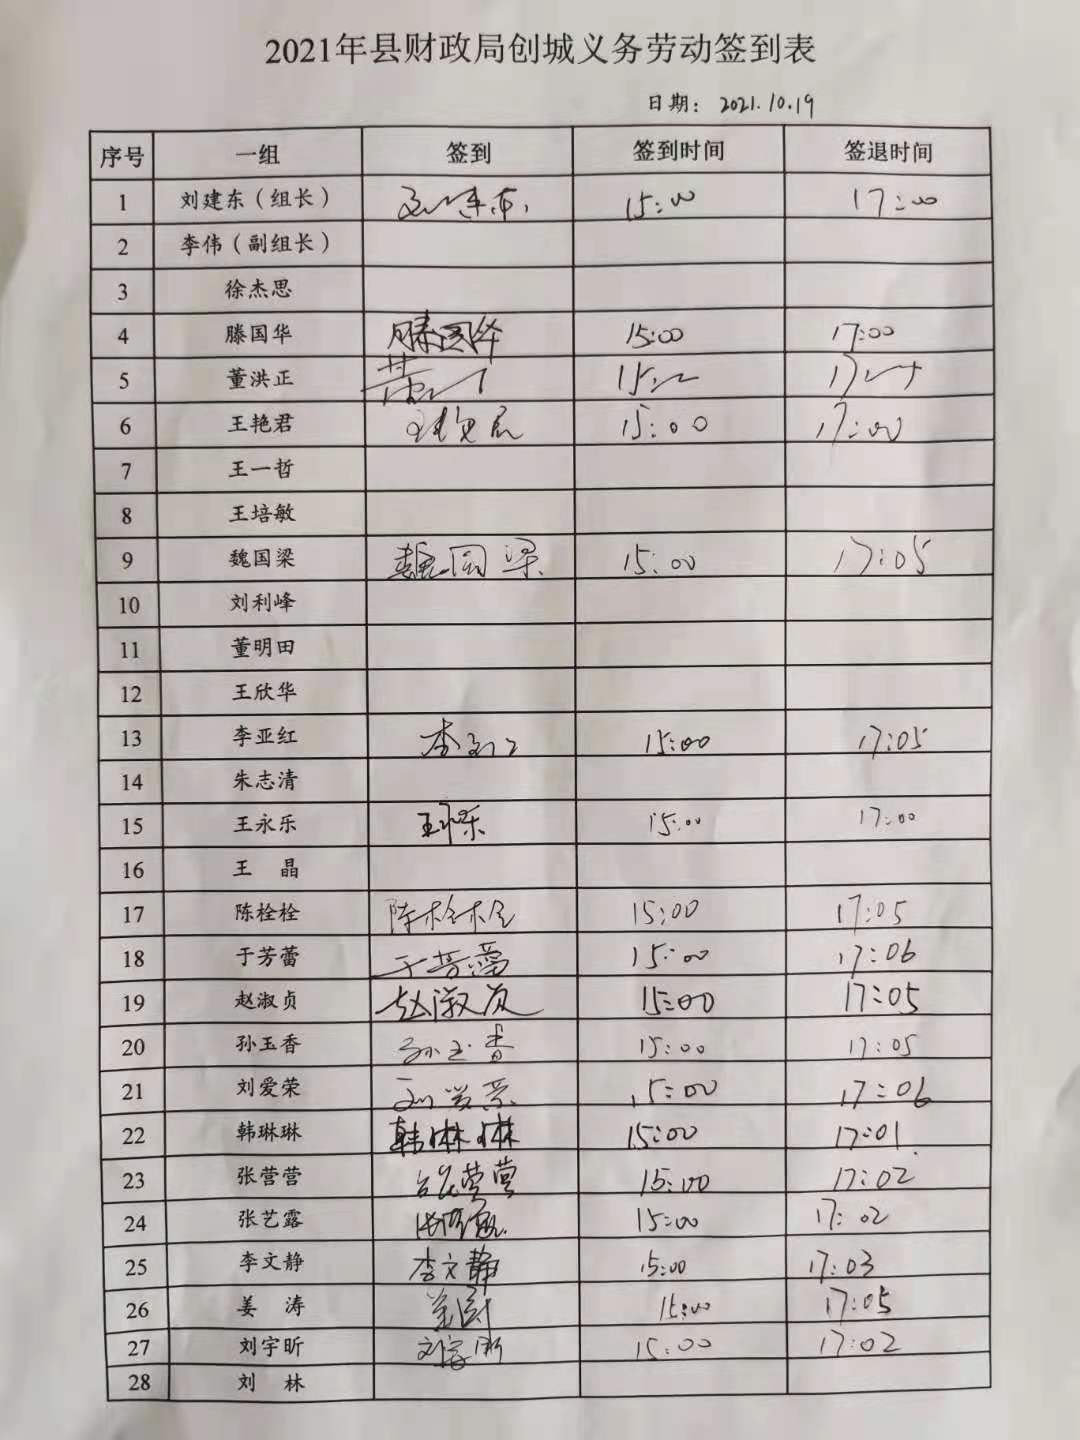 2021年县财政局创城义务劳动签到表
日期： 2021.10.19
序号 一组 签到 签到时间 签退时间
1 刘建东（组长） 刘建东 15:00 17:00
2 李伟（副组长）
3 徐杰思
4 滕国华 滕国华 15:00 17:00
5 董洪正 董洪正
6 王艳君 王艳君 15:00 17:00
7 王一哲
8 王培敏
9 魏国梁 魏国梁 15:00 17:05
10 刘利峰
11 董明田
12 王欣华
13 李亚红 李亚红 15:00 17:05
14 朱志清
15 王永乐 王永乐 15:00 17:00
16 王 晶
17 陈栓栓 陈栓栓 15:00 17:05
18 于芳蕾 于芳蕾 15:00 17:06
19 赵淑贞 赵淑贞 15:00 17:05
20 孙玉香 孙玉香 15:00 17:05
21 刘爱荣 刘爱荣 15:00 17:06
22 韩琳琳 韩琳琳 15:00 17:01
23 张营营 张营营 15:00 17:02
24 张艺露 15:00 17:02
25 李文静 李文静 15:00 17:03
26 姜 涛 15:00 17:05
27 刘宇昕 刘宇昕 15:00 17:02
28 刘 林